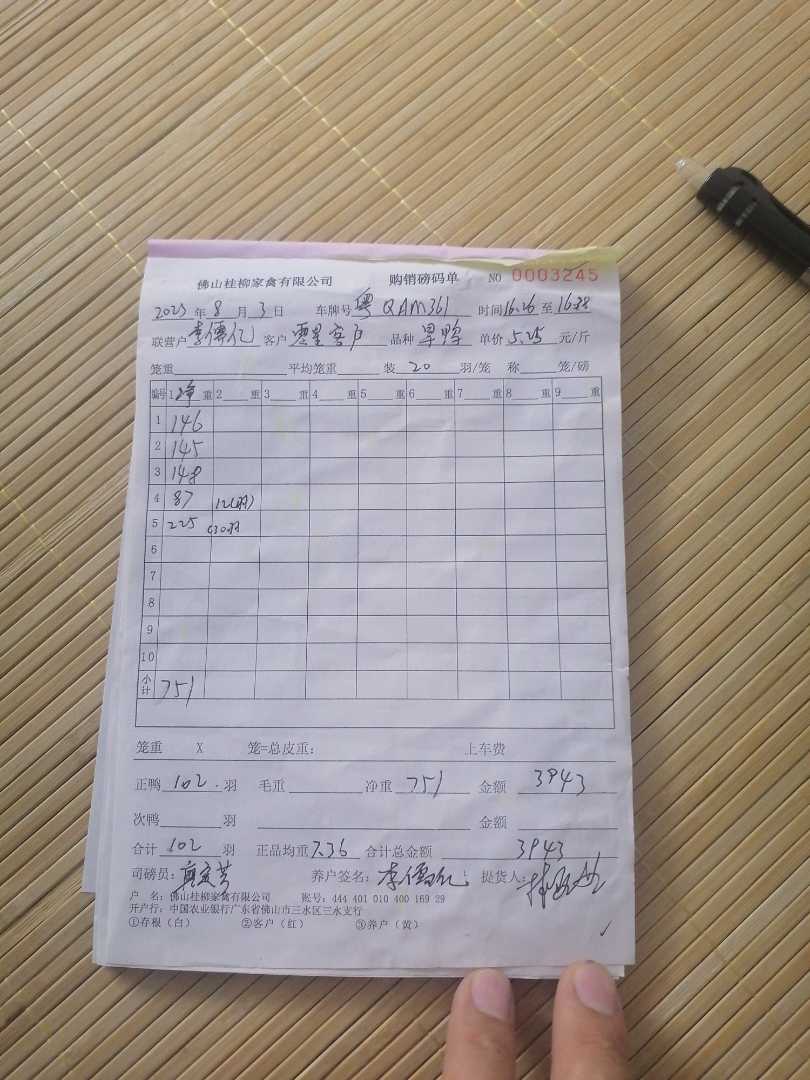 佛山桂柳家禽有限公司 购销磅码单 NO 0003245
2023年8月3日 车牌号粤QAM361 时间16:26至16:38
联营户李伟亿 客户零星客户 品种旱鸭 单价5.25元/斤
笼重 平均笼重 装20羽/笼 称 笼/磅
编号 1净重 2 重 3 重 4 重 5 重 6 重 7 重 8 重 9 重
1 146
2 145
3 148
4 87 12(羽)
5 225 (30羽
6
7
8
9
10
小计 751
笼重 X 笼=总皮重: 上车费
正鸭102.羽 毛重 净重751 金额3943
次鸭 羽 金额
合计102羽 正品均重7.36 合计总金额3943
司磅员: 养户签名: 提货人:
户 名: 佛山桂柳家禽有限公司 账号: 444 401 010 400 169 29
开户行: 中国农业银行广东省佛山市三水区三水支行
①存根(白) ②客户(红) ③养户(黄)